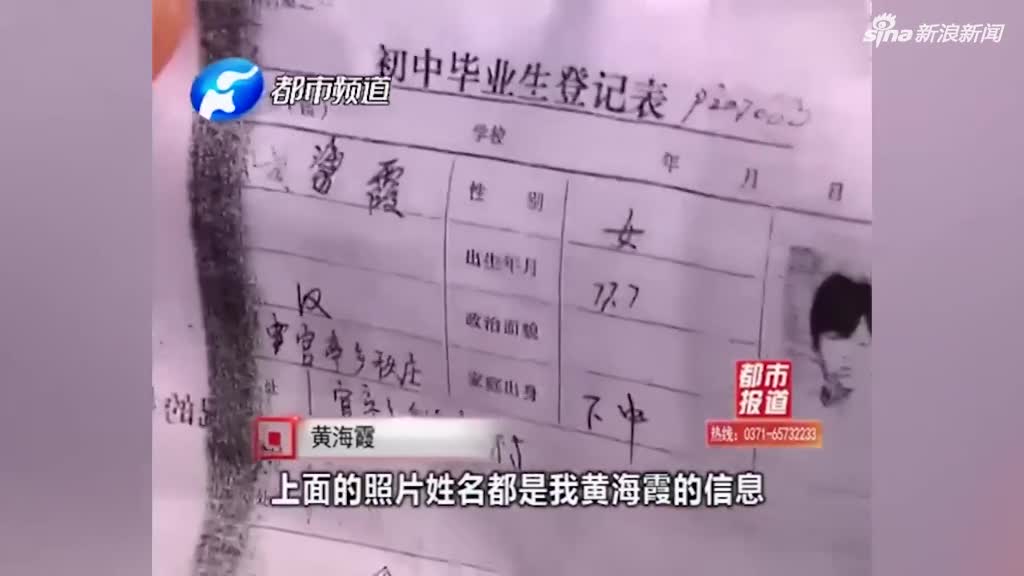 sina新浪新闻
都市频道
初中毕业生登记表
学校 年 月 日
黄海霞 性别 女
出生年月 77.7
汉 政治面貌
家庭出身 下中
都市
报道
热线：0371-65732233
黄海霞
上面的照片姓名都是我黄海霞的信息